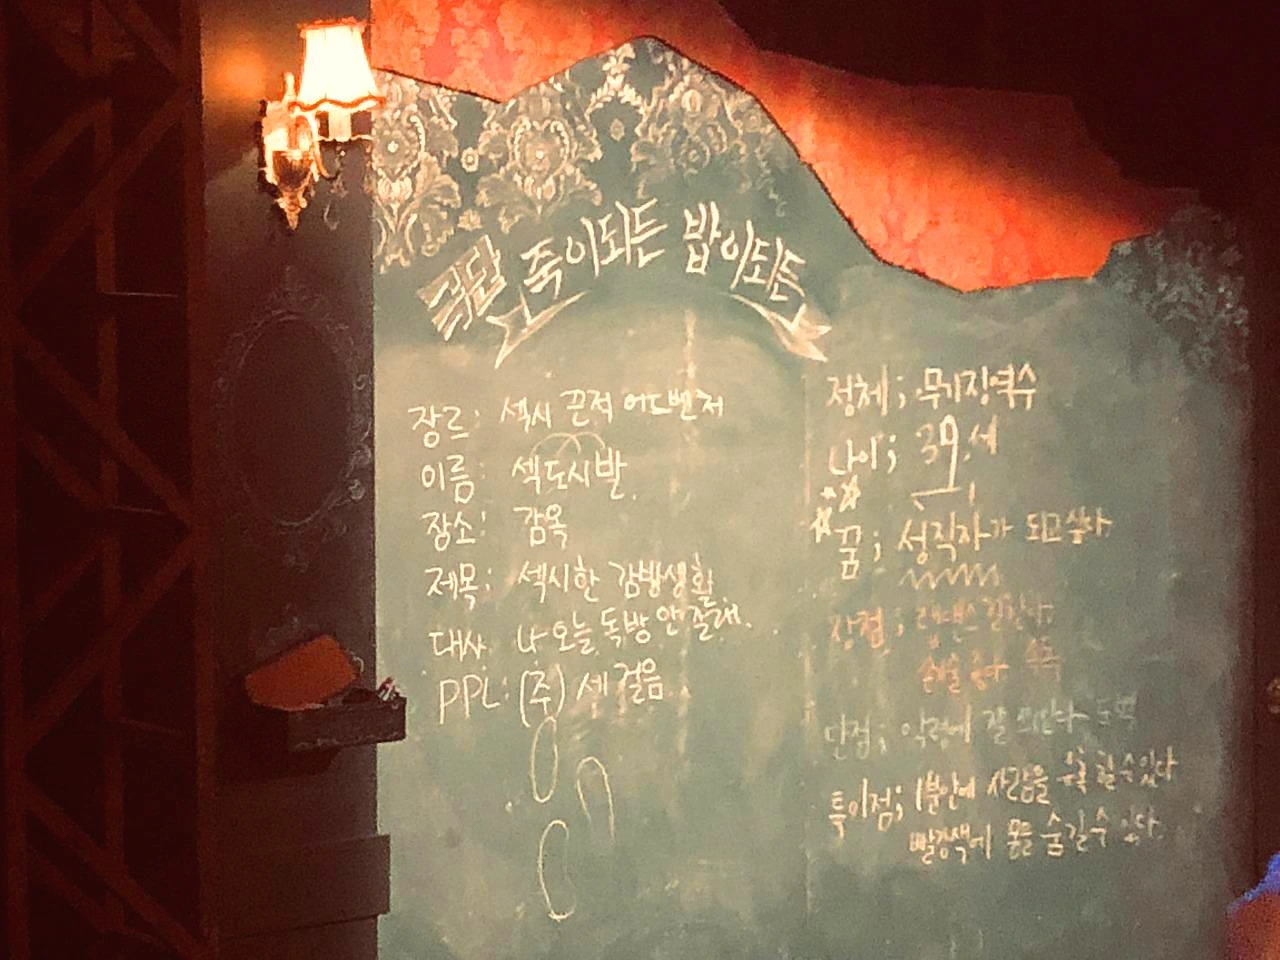 극단 죽이되든 밥이되든
장르: 섹시 끈적 어드벤처
이름: 섹도시발
장소: 감옥
제목: 섹시한 감방생활
대사: 나 오늘 독방 안갈래.
PPL: (주) 세 걸음
정체; 무기징역수
나이; 39세
꿈; 성직자가 되고싶다
장점;
단점; 악령에 잘
특이점; 1분안에 사람을 할 수 있다
빨강색에 몸을 숨길 수 있다.